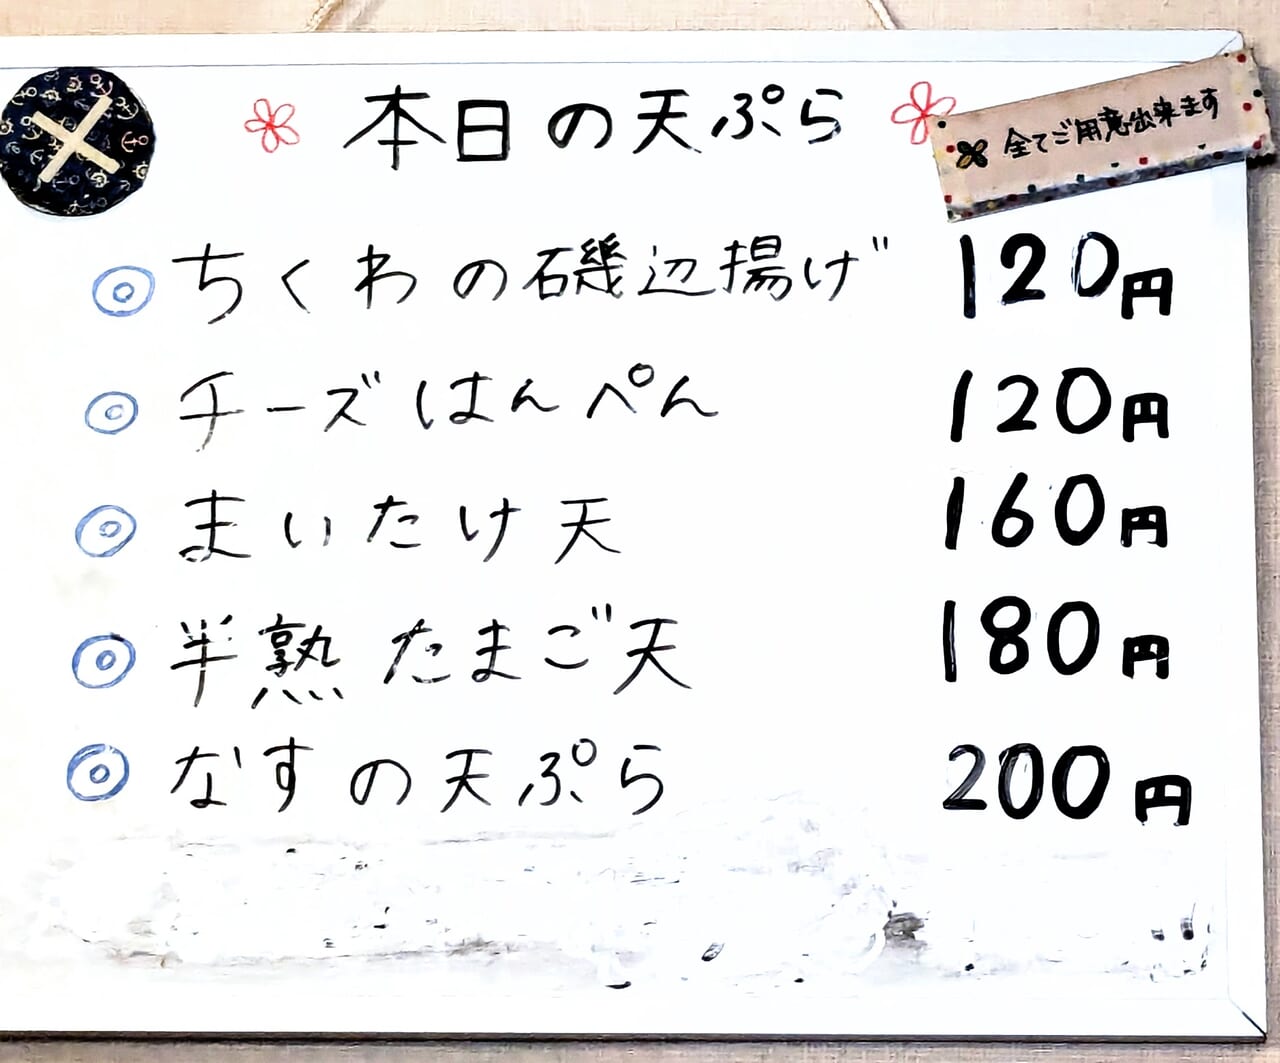 本日の天ぷら
全てご用意出来ます
◎ ちくわの磯辺揚げ 120円
◎ チーズはんぺん 120円
◎ まいたけ天 160円
◎ 半熟たまご天 180円
◎ なすの天ぷら 200円